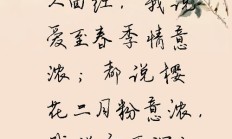 人面红，我说
爱至春季情意
浓；都说樱
花二月粉意浓，